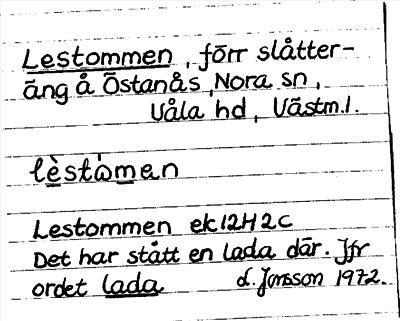 Lestommen, förr slåtter-
äng å Östanås, Nora sn,
Våla hd, Västm.l.
lèstòmen
Lestommen ek12H2c
Det har stått en lada där. Jfr
ordet lada d. Jonsson 1972.